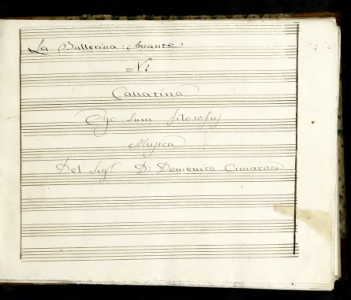 La Ballerina Amante
N1
Cavatina
Ego sum filosofus
Musica
Del Sigr D: Domenico Cimarosa